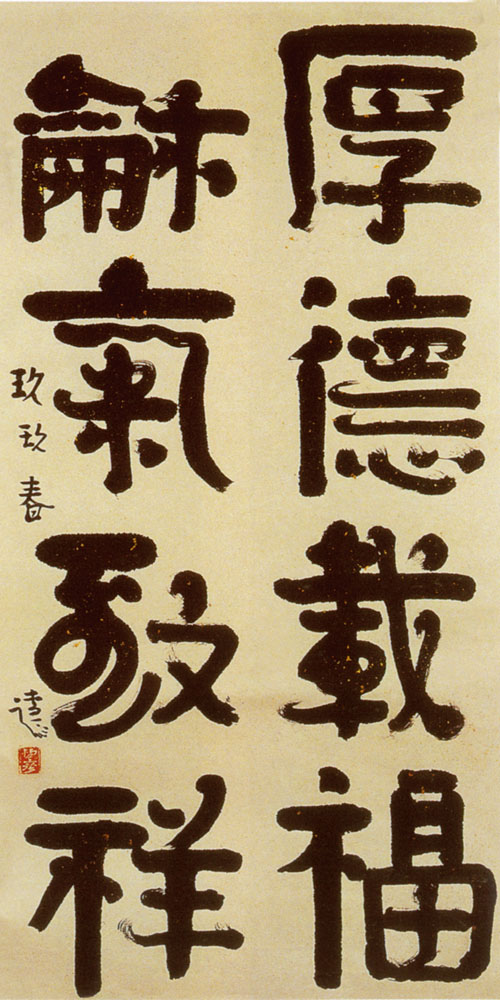 厚德載福
龢氣致祥
玖玖春